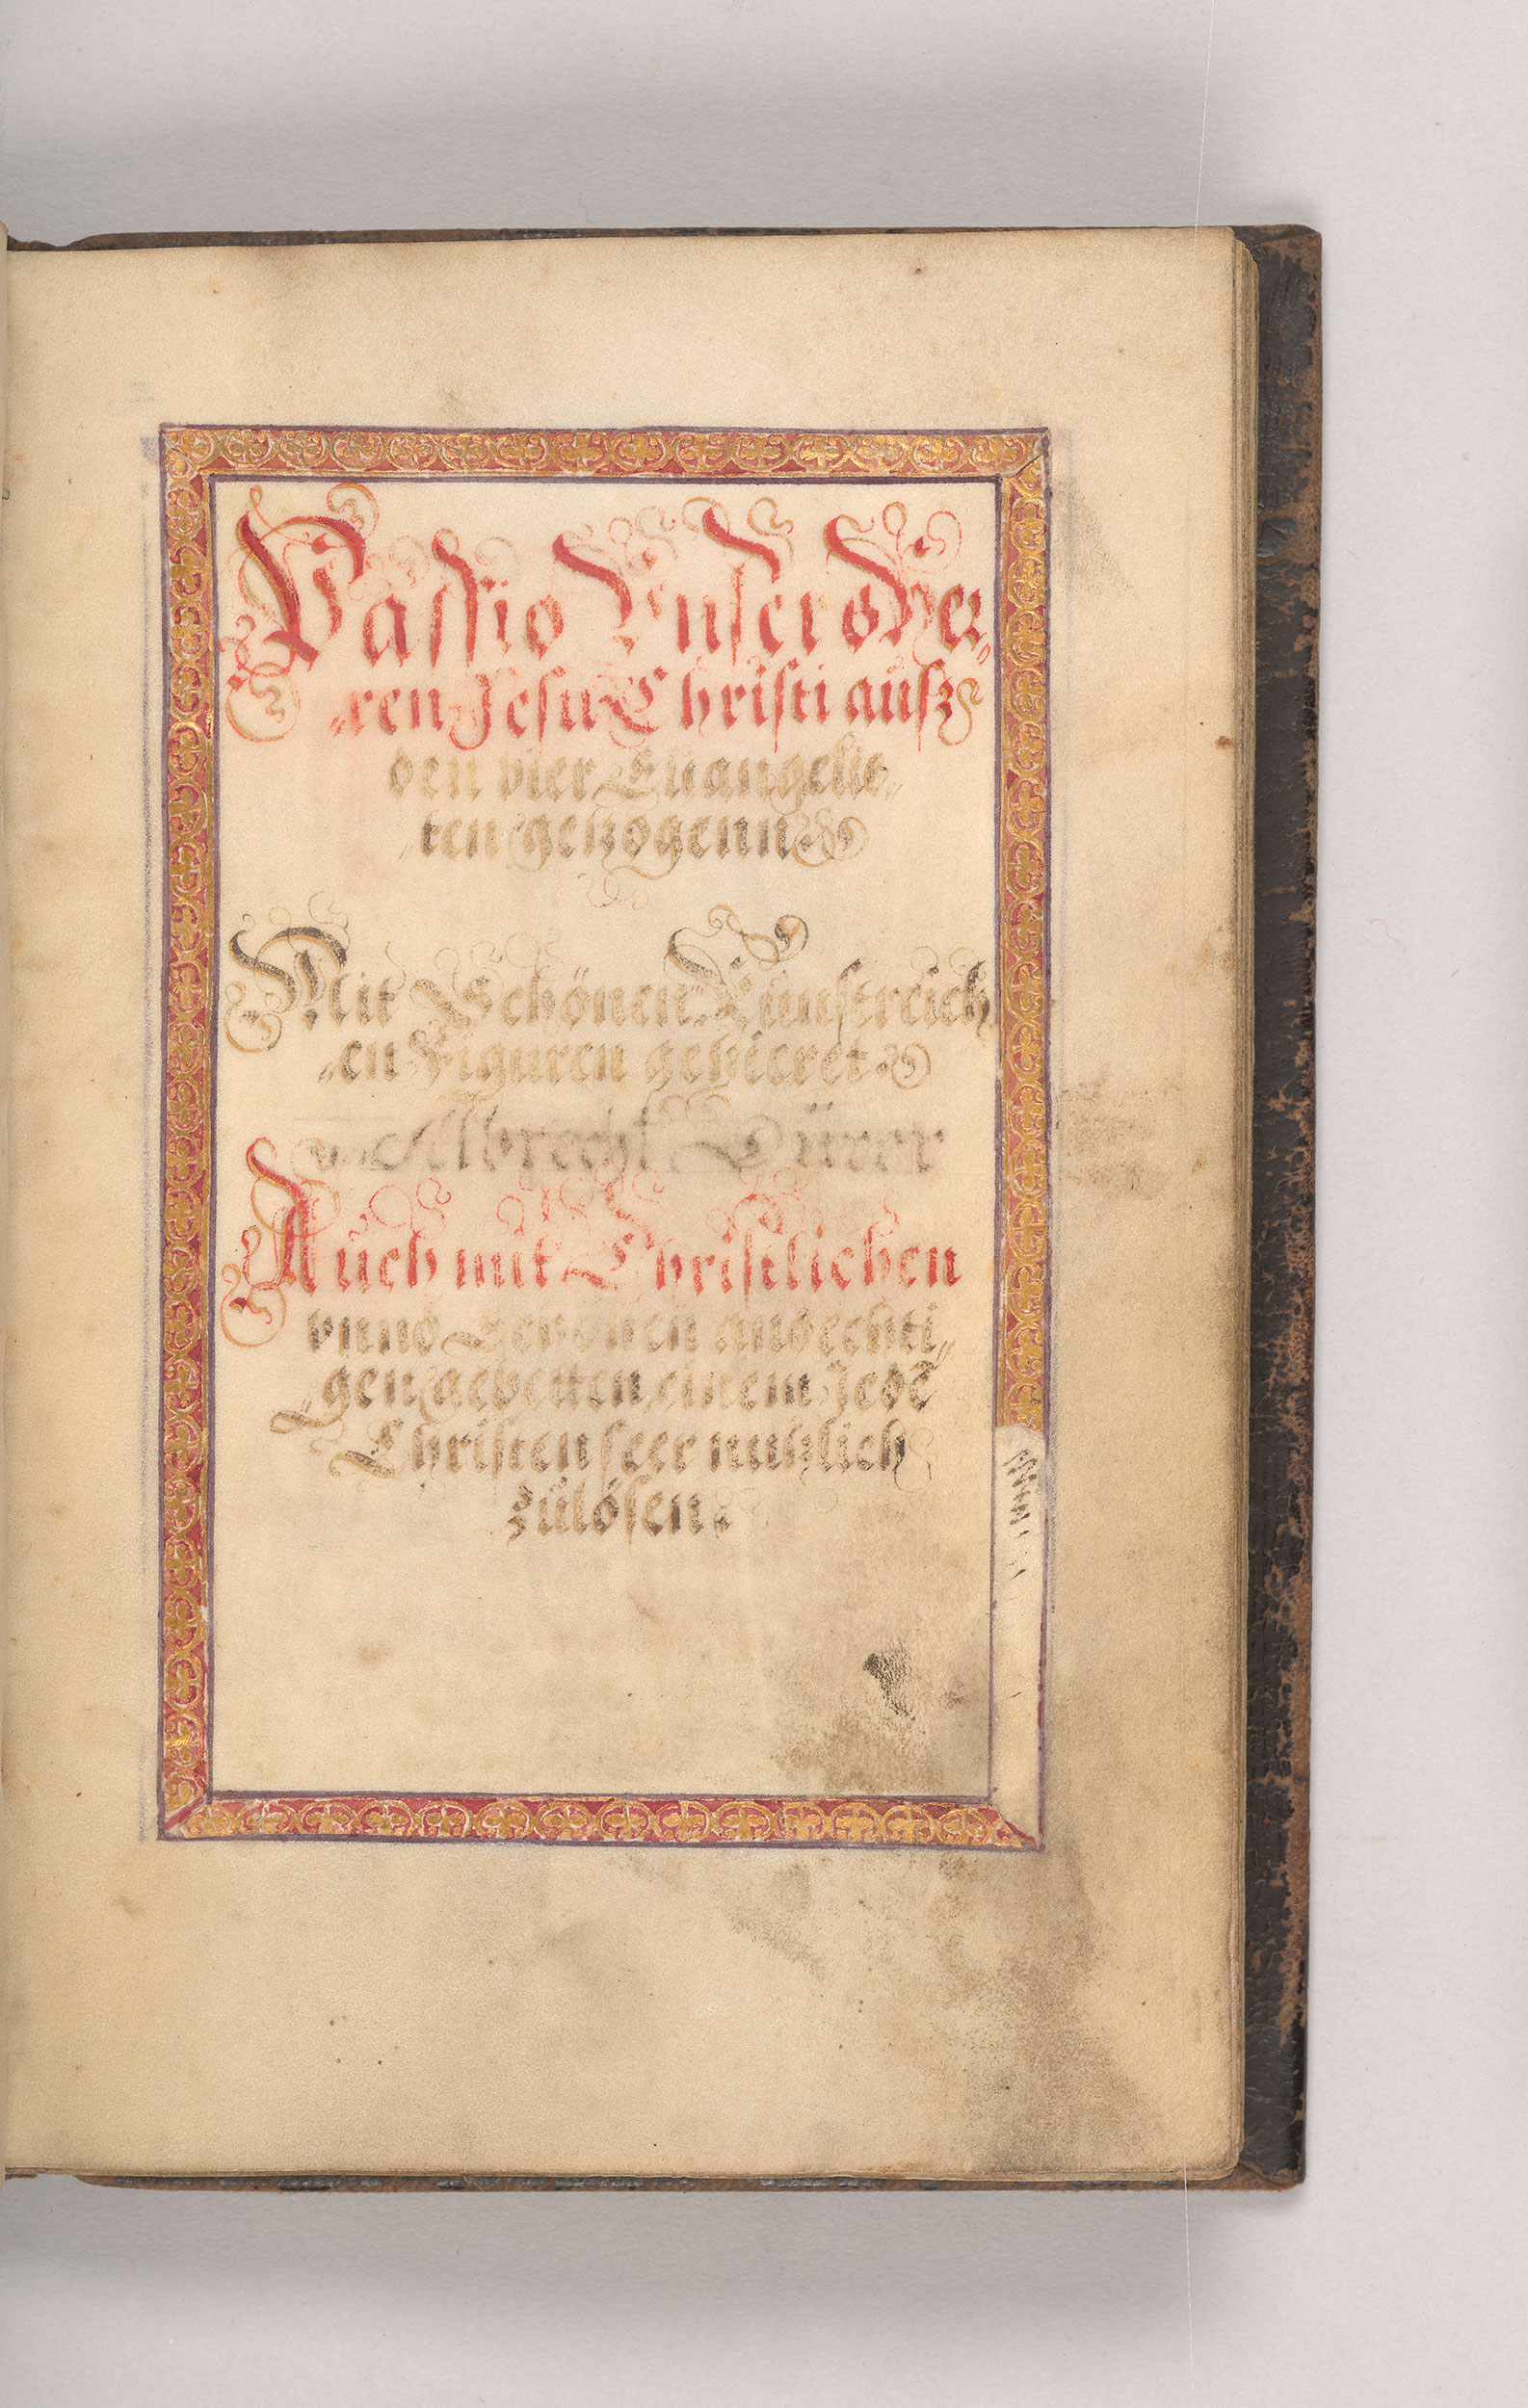 Passio Unsers Her„
„ren Jesu Christi ausz
den vier Euangelis„
„ten getzogenn.
Mit Schönen Kunstreich
„en Figuren getzieret.
v. Albrecht Dürer
Auch mit Christlichen
vnnd Schönen andechti„
„gen gebetten, einem Jedē
Christen seer nutzlich
zulösen.